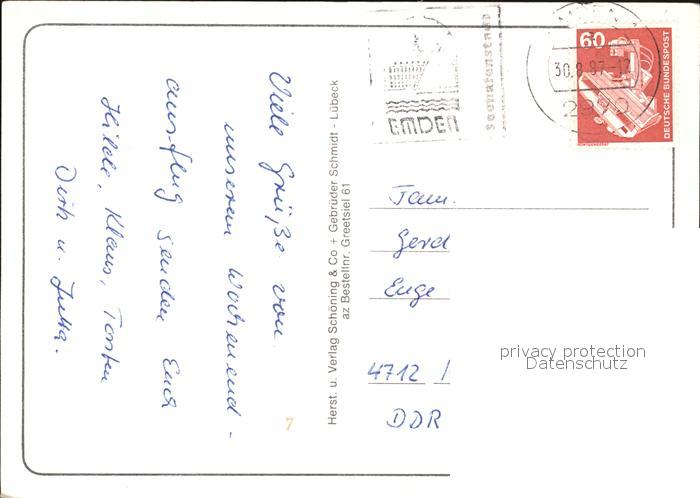 Viele Grüße von
unserem Wochenend-
ausflug senden Euch
Hilde, Klaus, Torsten
Dirk u. Jutta.
7
Herst. u. Verlag Schöning & Co + Gebrüder Schmidt - Lübeck
az Bestellnr. Greetsiel 61
EMDEN
Seehafenstadt
30.8.87-12
60
DEUTSCHE BUNDESPOST
RÖNTGENGERÄT
Fam.
Gerd
Enge
4712
DDR
privacy protection
Datenschutz